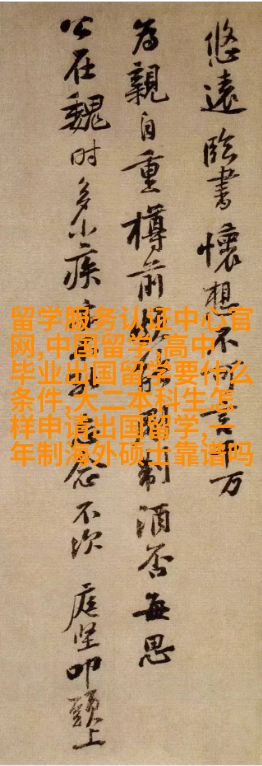 悠遠臨書懷想不言千万
為親自重樽前制酒否每思
公在魏時多小疾忘念不次 庭坚叩頭上
留学服务认证中心官
网,中国留学,高中
毕业出国留学要什么
条件,大二本科生怎
样申请出国留学,一
年制海外硕士靠谱吗